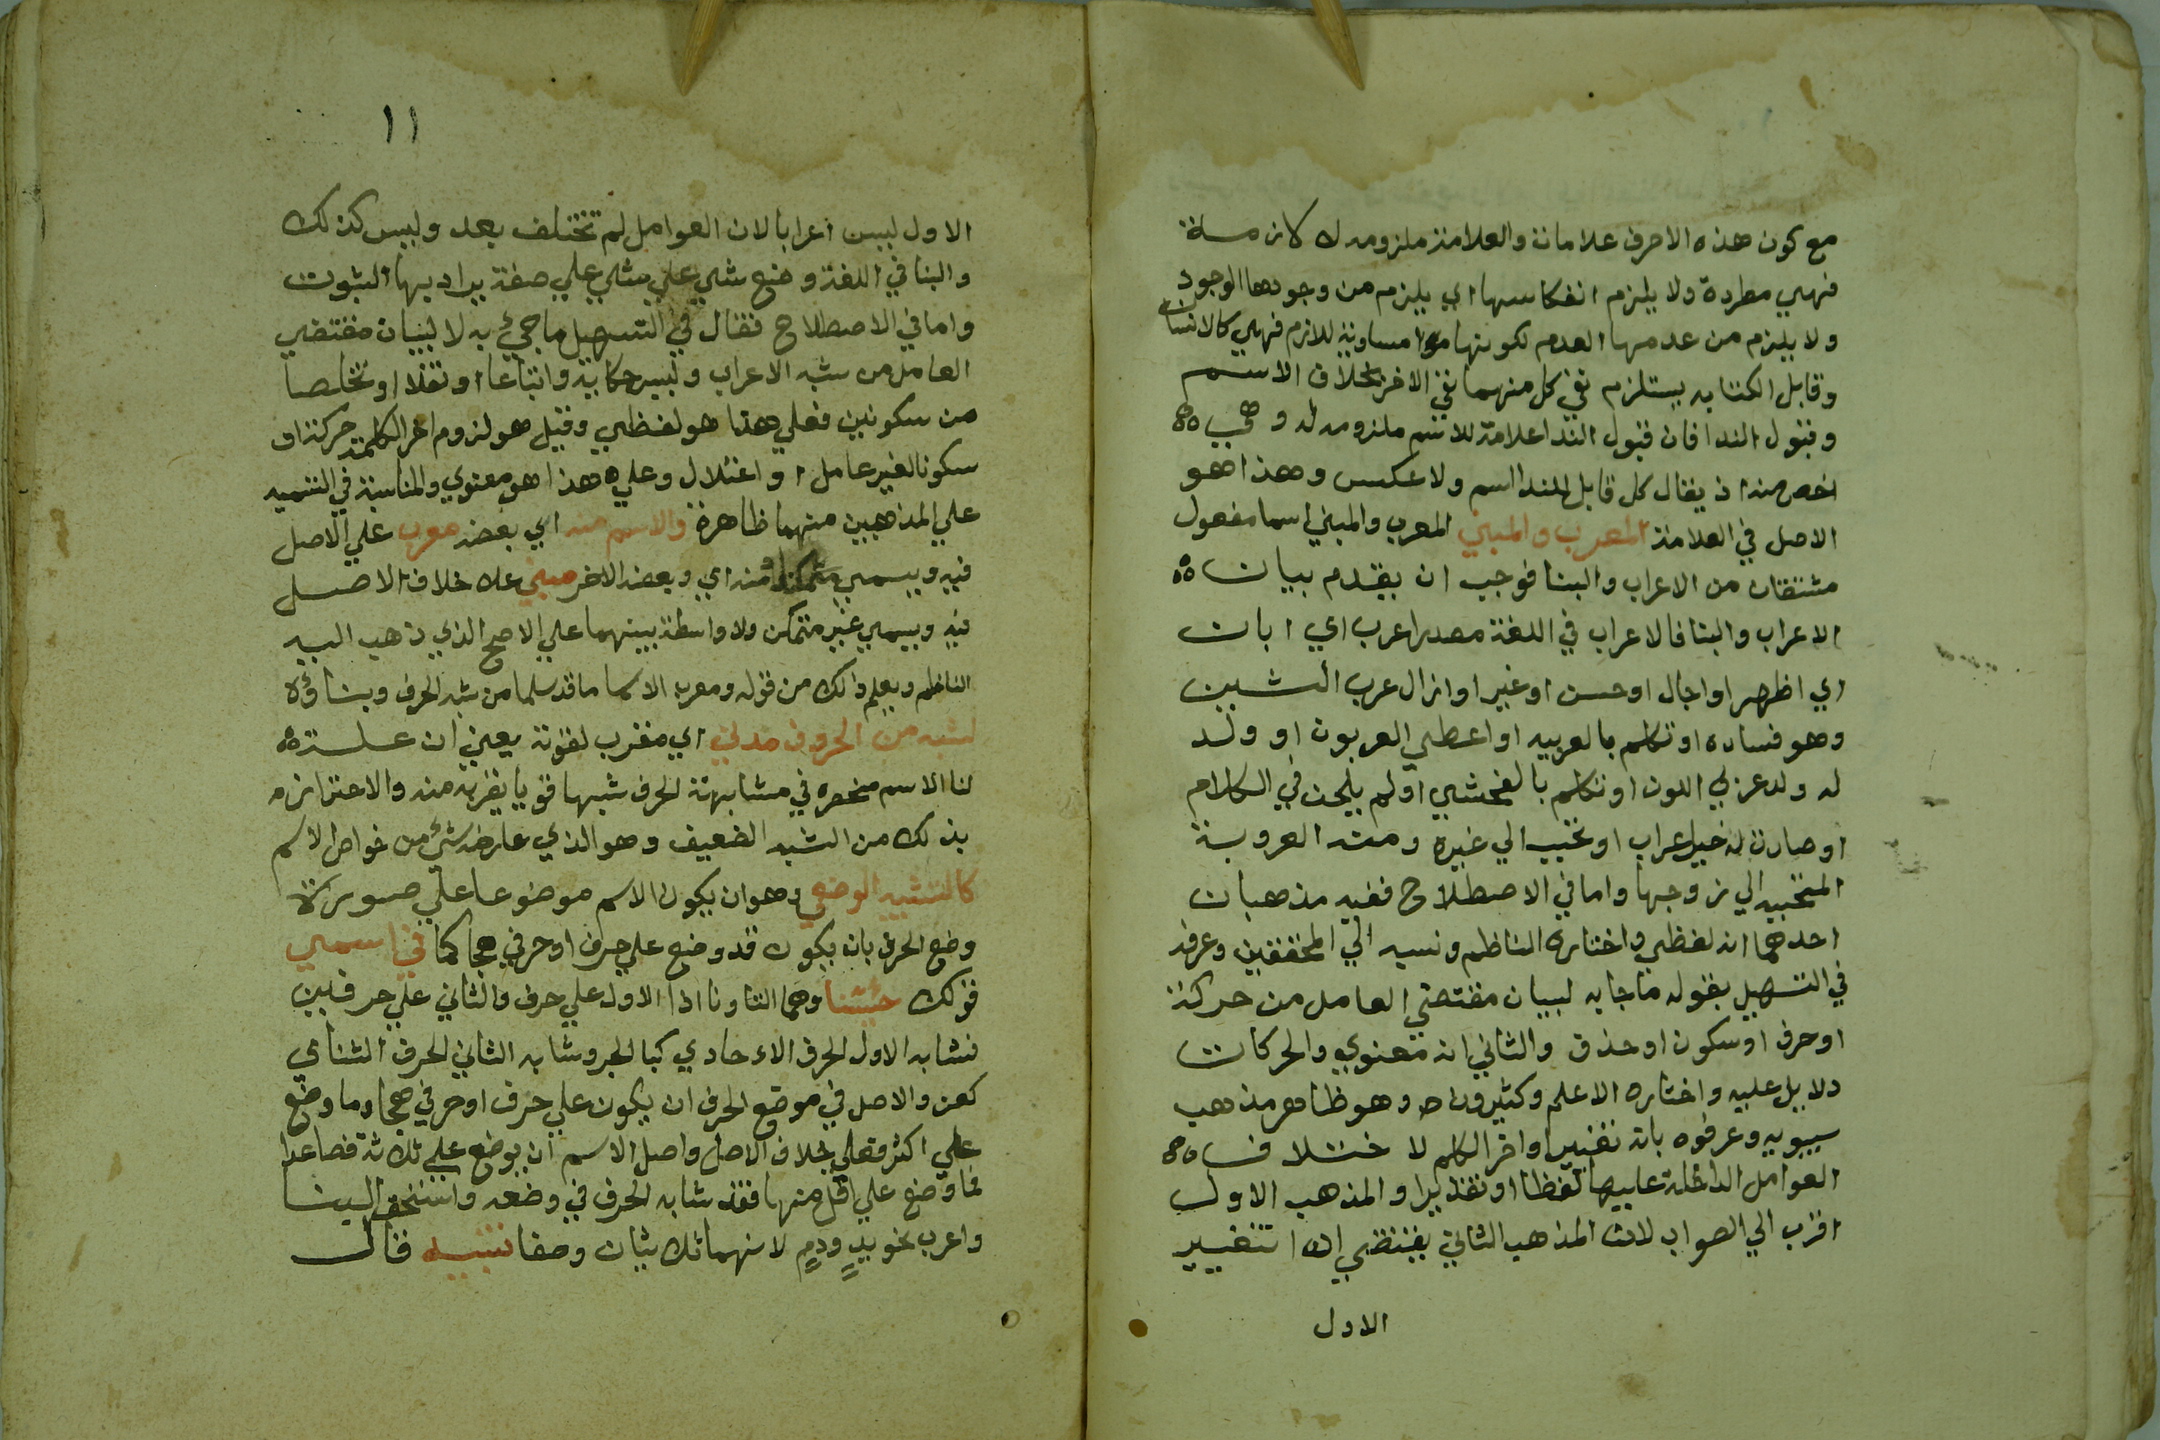 مع كون هذه الاحرف علامات والعلامة ملزومه لا لازمة
فهي مطردة ولا يلزم انعكاسها اي يلزم من وجودها الوجود
ولا يلزم من عدمها العدم لكونها مساوية للازم فهي كالانسان
وقابل الكتابه يستلزم نفي كل منهما نفي الاخر بخلاف الاسم
وقبول الندا فان قبول الندا علامة للاسم ملزومه له وهي
اخص منه اذ يقال كل قابل للندا اسم ولا عكس وهذا هو
الاصل في العلامة المعرب والمبني المعرب والمبني اسما مفعول
مشتقان من الاعراب والبنا فوجب ان يقدم بيان
الاعراب والبنا فالاعراب في اللغة مصدر اعرب اي ابان
اي اظهر او اجال او حسن او غير او ازال عرب الشين
وهو فساده او تكلم بالعربيه او اعطي العربون او ولد
له ولد عزبي اللون او تكلم بالفحش او لم يلحن في الكلام
او صارت له خيل عراب او تحبب الي غيره ومنه العروبة
المتحببه الي زوجها واما في الاصطلاح ففيه مذهبان
احدهما انه لفظي واختاره الناظم ونسبه الي المحققين وعرفه
في التسهيل بقوله ما جا به لبيان مقتضي العامل من حركة
او حرف او سكون او حذف والثاني انه معنوي والحركات
دلايل عليه واختاره الاعلم وكثيرون وهو ظاهر مذهب
سيبويه وعرفوه بانه تغيير اواخر الكلم لاختلاف
العوامل الداخلة عليها لفظا او تقديرا والمذهب الاول
اقرب الي الصواب لان المذهب الثاني يقتضي ان التغيير
الاول
١١
الاول ليس اعرابا لان العوامل لم تختلف بعد وليس كذلك
والبنا في اللغة وضع شي علي شي علي صفة يراد بها الثبوت
واما في الاصطلاح فقال في التسهيل ما جيء به لا لبيان مقتضي
العامل من شبه الاعراب وليس حكاية واتباعا او نقلا او تخلصا
من سكونين فعلي هذا هو لفظي وقيل هو لزوم اخر الكلمة حركة او
سكونا لغير عامل او اعتلال وعليه هذا هو معنوي والمناسبة في التسميه
علي المذهبين منهما ظاهرة والاسم منه اي بعضه معرب علي الاصل
فيه ويسمي متمكنا ومنه اي وبعضه الاخر مبني علي خلاف الاصل
فيه ويسمي غير متمكن ولا واسطة بينهما علي الاصح الذي ذهب اليه
الناظم ويعلم ذالك من قوله ومعرب الاسما ما قد سلما من شبه الحرف وبناؤه
لشبه من الحروف مدني اي مقرب لقوته يعني ان علة
بنا الاسم منحصره في مشابهته الحرف شبها قويا يقربه منه والاحتراز
بذلك من الشبه الضعيف وهو الذي عارضه شي من خواص الاسم
كالشبه الوضعي وهو ان يكون الاسم موضوعا علي صورة
وضع الحرف بان يكون قد وضع علي حرف او حرفي هجا كما في اسمي
قولك جئتنا وهما التا ونا اذ الاول علي حرف والثاني علي حرفين
فشابه الاول الحرف الاحادي كبا الجر وشابه الثاني الحرف الثنائي
كعن والاصل في موضع الحرف ان يكون علي حرف او حرفي هجا وما وضع
علي اكثر فعلي خلاف الاصل واصل الاسم ان يوضع علي ثلاثة فصاعدا
فما وضع علي اقل منها فقد شابه الحرف في وضعه واستحق البنا
واعرب نحو يدٍ ودمٍ لانهما ثلاثيان وضعا تنبيه قال